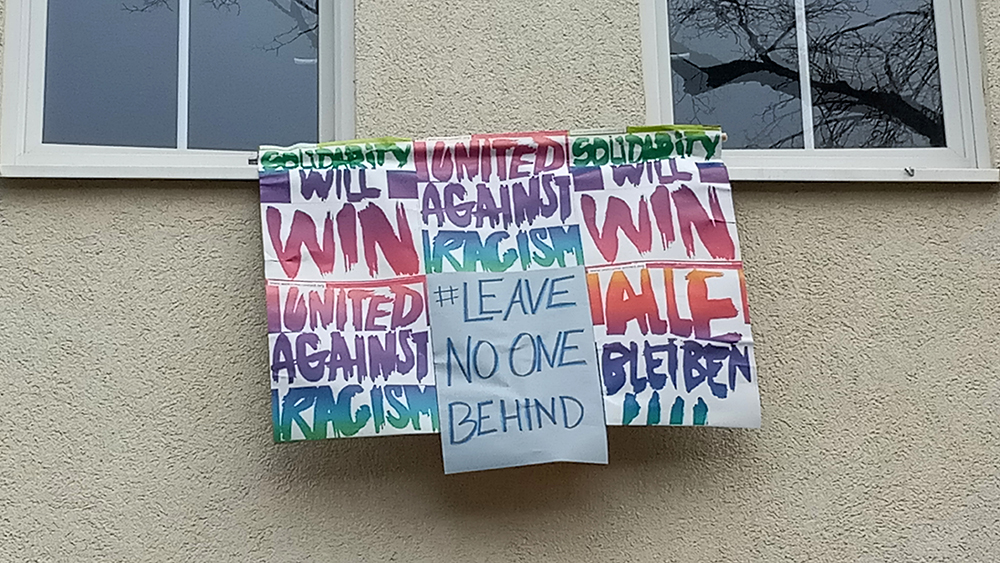 SOLIDARITY
WILL
WIN
UNITED
AGAINST
RACISM
SOLIDARITY
WILL
WIN
UNITED
AGAINST
RACISM
#LEAVE
NO ONE
BEHIND
ALLE
BLEIBEN
!!!!